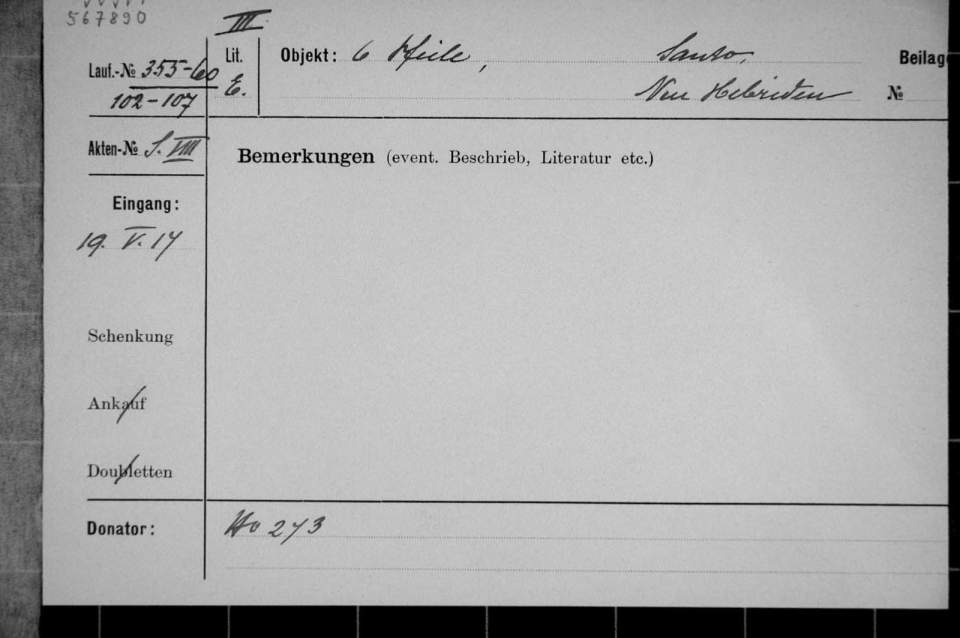 567890
III
Lauf.-№ 355-60
102-107
Lit.
E.
Objekt: 6 Pfeile, Santo,
Neu Hebriden
Beilag
№
Akten-№ S. VIII
Bemerkungen (event. Beschrieb, Literatur etc.)
Eingang:
19. V. 14
Schenkung
Ankauf
Doubletten
Donator: 273